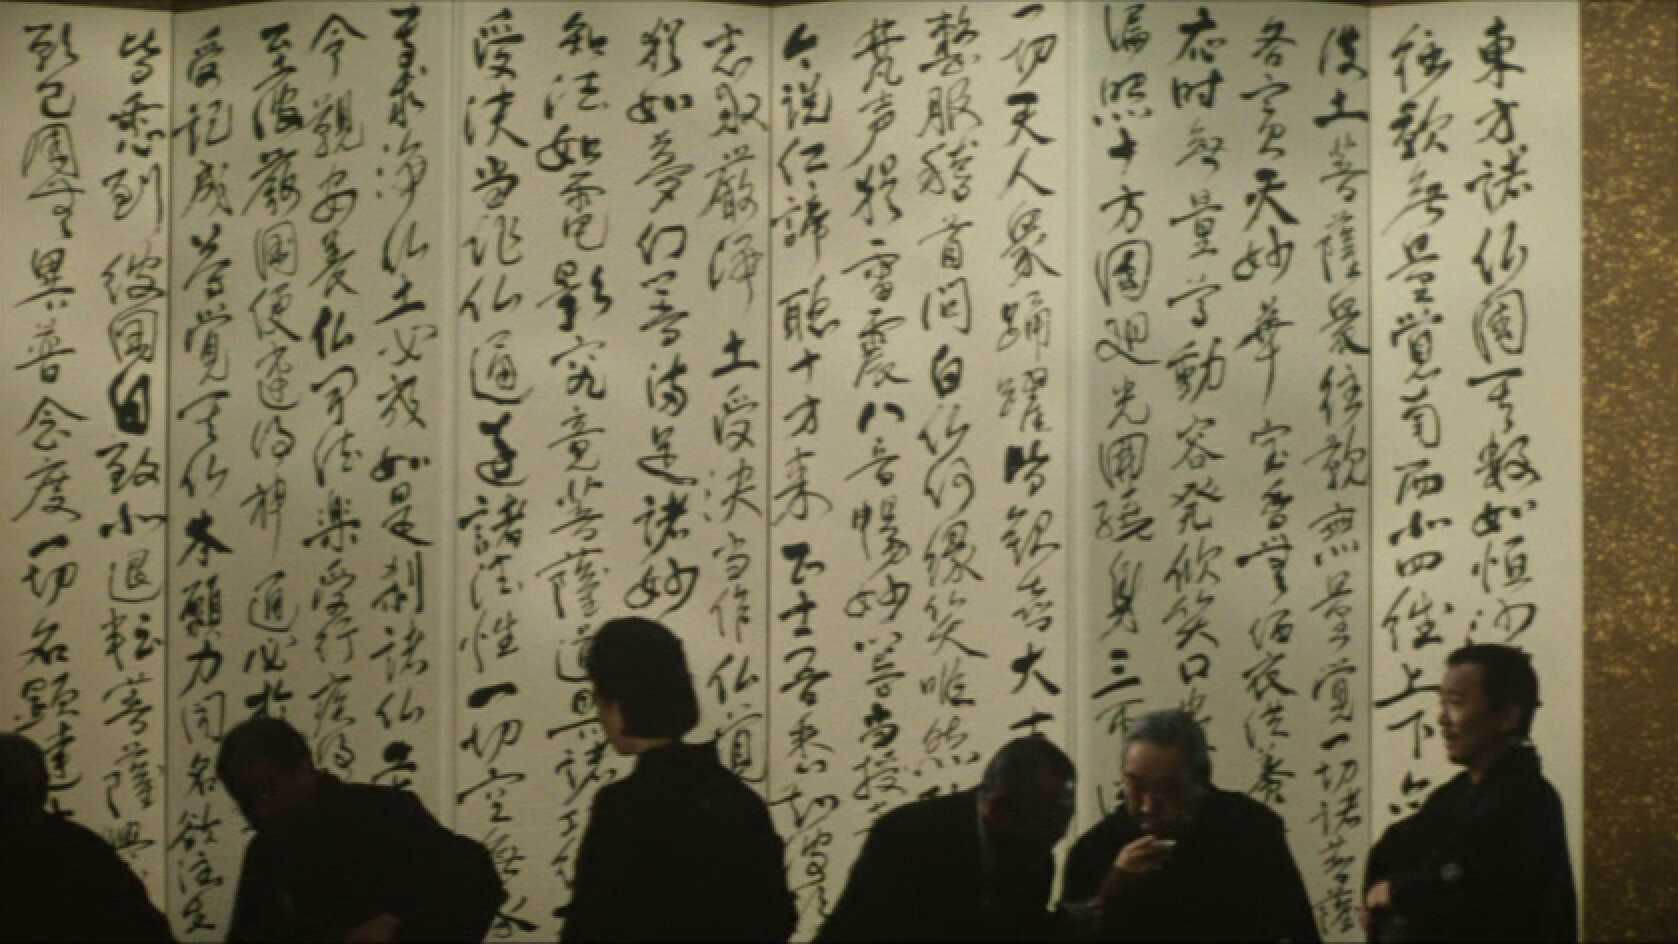 東方諸仏国其数如恒沙
往覲無量覚南西北四維上下亦
彼土菩薩衆往覲無量覚一切諸菩薩
各齎天妙華宝香無価衣供養
応時無量尊動容発欣笑口出
遍照十方国廻光囲繞身三帀
一切天人衆踊躍皆歓喜大士
整服稽首問白仏何縁笑唯然
梵声猶雷震八音暢妙響当授
今説仁諦聴十方来正士吾悉知彼願
志求厳浄土受決当作仏覚
猶如夢幻響満足諸妙
知法如電影究竟菩薩道具諸功
受決当作仏通達諸法性一切空無我
専求浄仏土必成如是刹諸仏告
令覲安養仏聞法楽受行疾得
至彼厳国便速得神通必於
受記成等覚其仏本願力聞名欲往生
皆悉到彼国自致不退転菩薩興
願己国無異普念度一切名顕達十